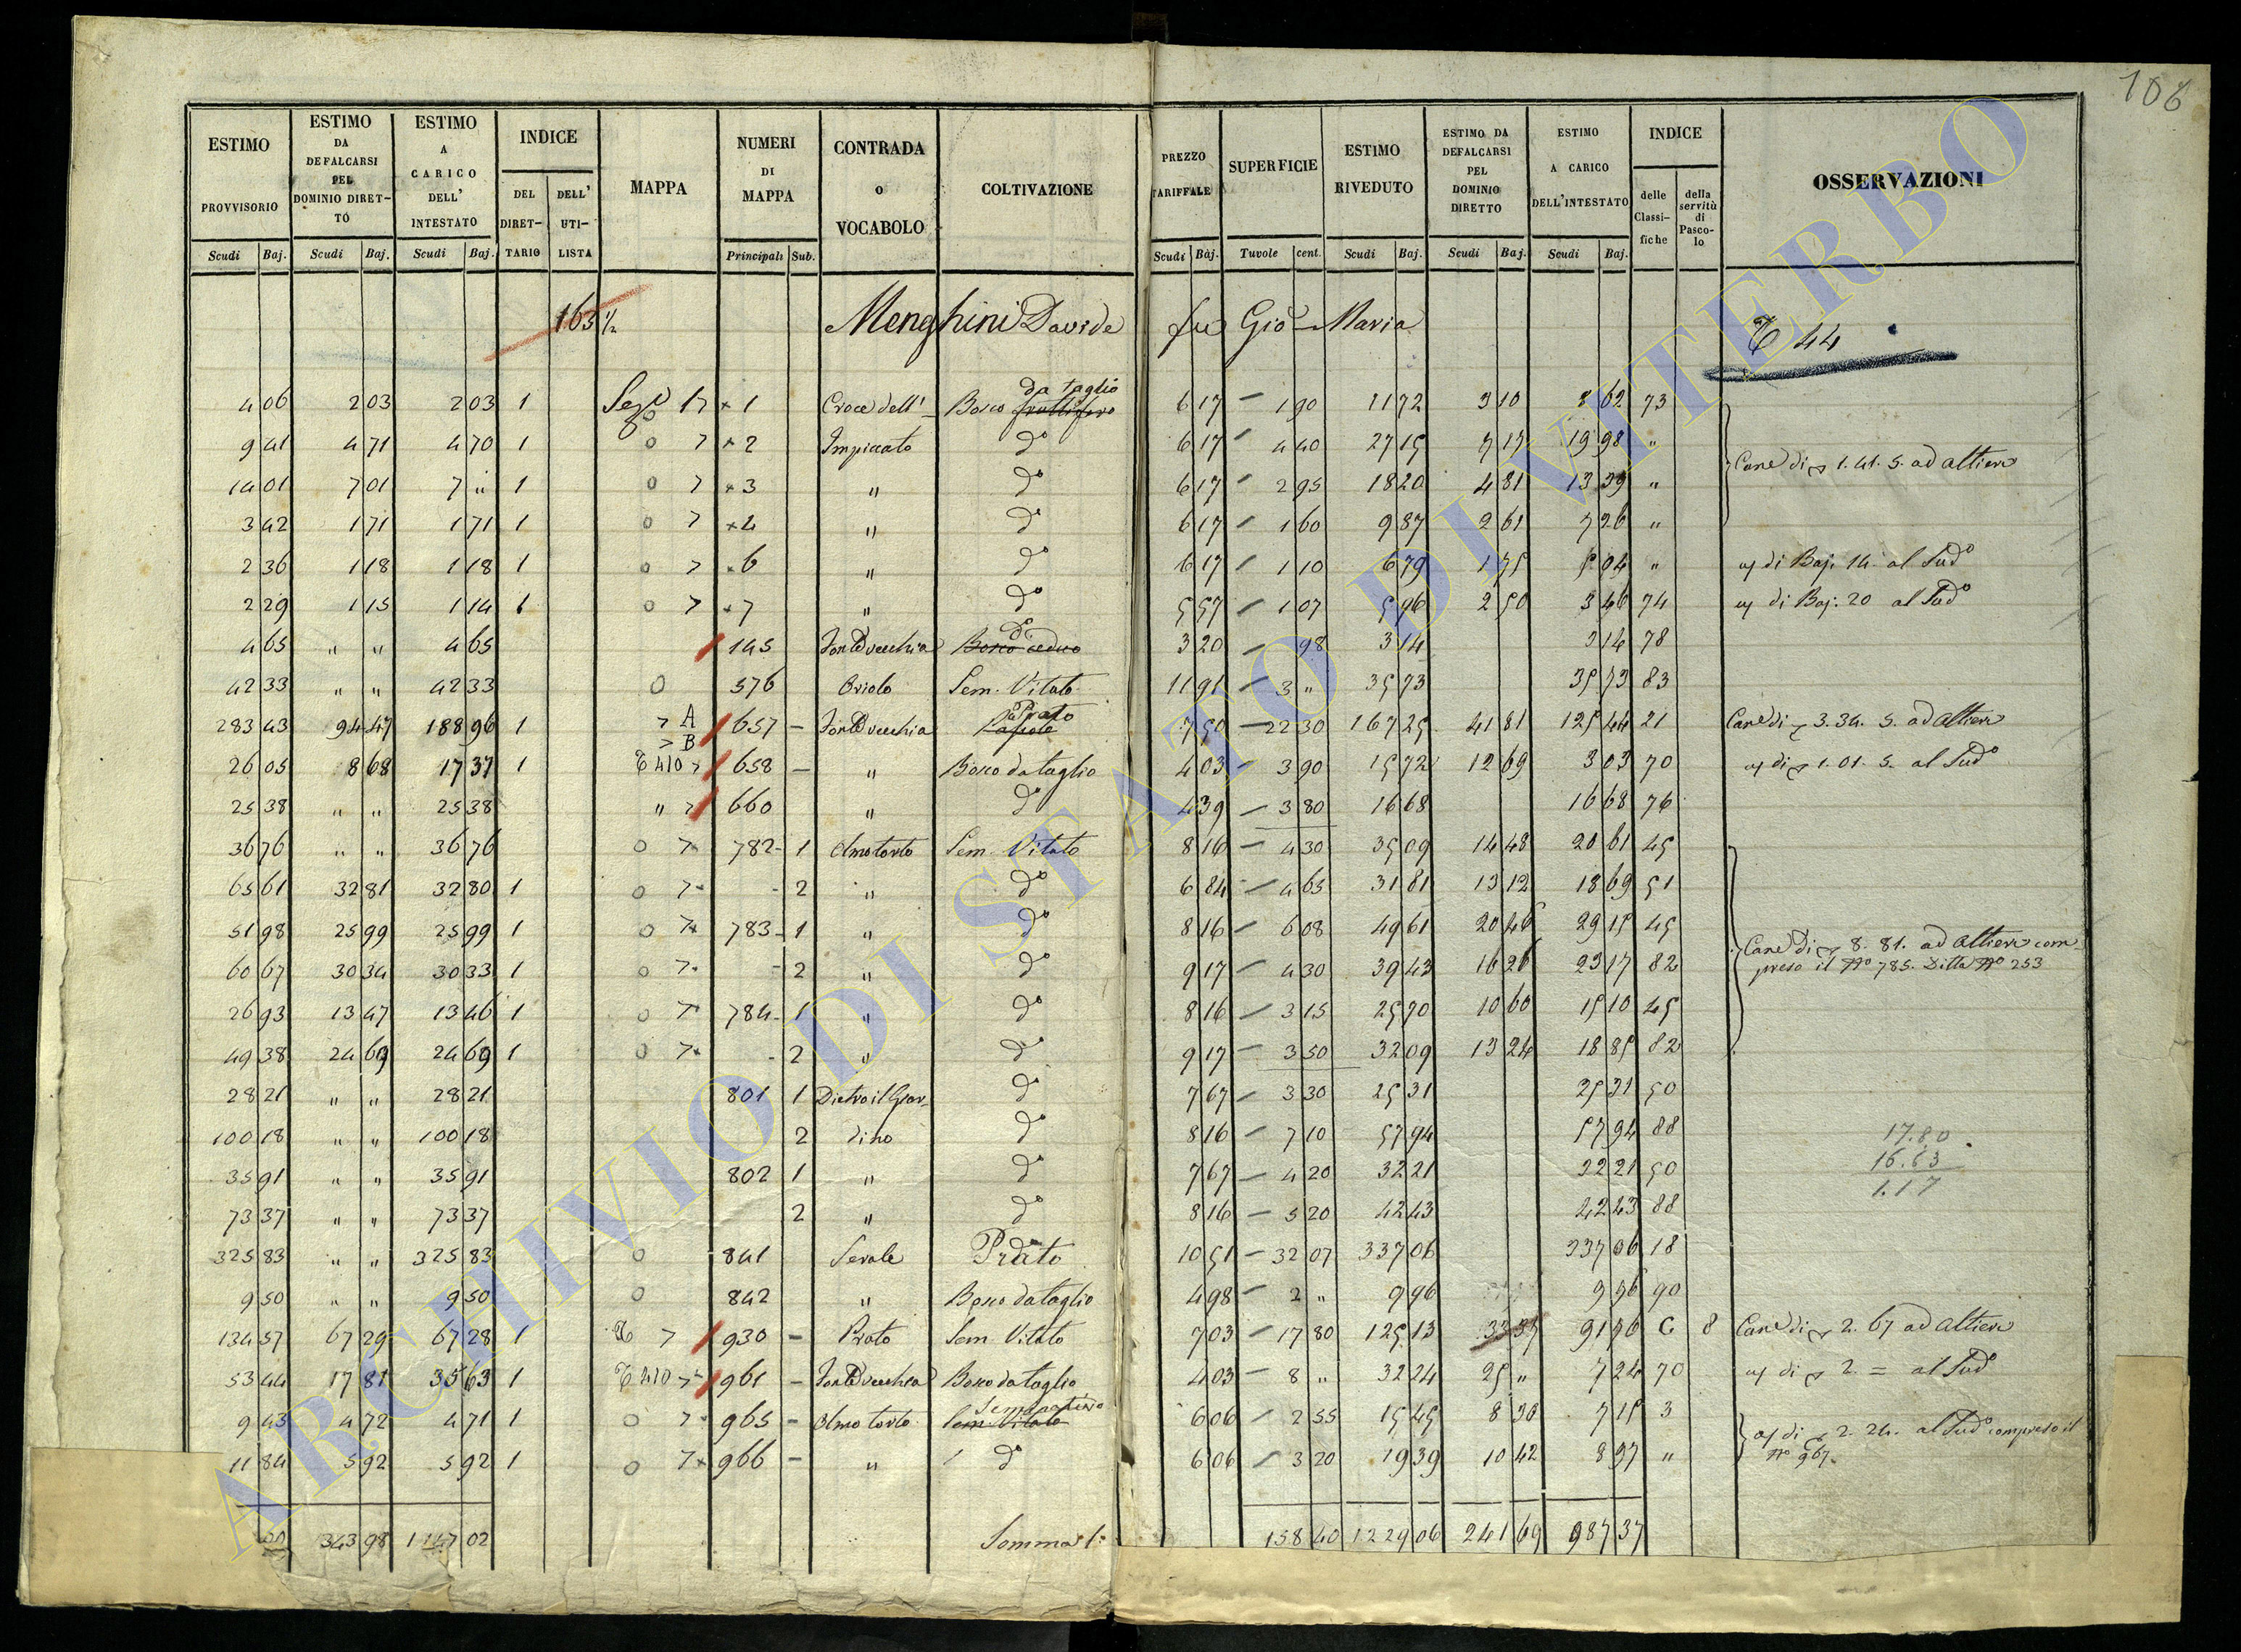 108
ESTIMO PROVVISORIO Scudi Baj.
ESTIMO DA DEFALCARSI PEL DOMINIO DIRETTO Scudi Baj.
ESTIMO A CARICO DELL' INTESTATO Scudi Baj.
INDICE DEL DIRETTARIO DELL' UTILISTA
MAPPA
NUMERI DI MAPPA Principali Sub.
CONTRADA o VOCABOLO
COLTIVAZIONE
PREZZO TARIFFALE Scudi Baj.
SUPERFICIE Tavole cent.
ESTIMO RIVEDUTO Scudi Baj.
ESTIMO DA DEFALCARSI PEL DOMINIO DIRETTO Scudi Baj.
ESTIMO A CARICO DELL'INTESTATO Scudi Baj.
INDICE delle Classifiche della servitù di Pascolo
OSSERVAZIONI
163 1/2 Menghini Davide fu Gio Maria
44
4 06 2 03 2 03 1 17 1 Croce dell' Bosco da taglio fruttifero 6 17 1 90 11 72 3 10 8 62 73
9 41 4 71 4 70 1 2 Impiccato do 6 17 4 40 27 15 7 17 19 98 "
14 01 7 01 7 " 1 3 " do 6 17 2 95 18 20 4 81 13 39 " Cane di 1. 41. 5. ad Altieri
3 42 1 71 1 71 1 4 " do 6 17 1 60 9 87 2 61 7 26 "
2 36 1 18 1 18 1 6 " do 6 17 1 10 6 79 1 75 5 04 " di Baj. 14. al Sudo
2 29 1 15 1 14 1 7 " do 5 57 1 07 5 96 2 50 3 46 74 di Baj. 20 al Sudo
4 65 " " 4 65 145 Fonte vecchia do Bosco ceduo 3 20 98 3 14 3 14 78
42 33 " " 42 33 576 Oriolo Sem. Vitato 11 91 3 " 35 73 35 73 83
283 43 94 47 188 96 1 A B 657 Fonte vecchia Prato 7 50 22 30 167 25 41 81 125 44 21 Cane di 3. 34. 5. ad Altieri
26 05 8 68 17 37 1 410 658 " Bosco da taglio 4 03 3 90 15 72 12 69 3 03 70 di 1. 01. 5. al Sudo
25 38 " " 25 38 " 660 " do 4 39 3 80 16 68 16 68 76
36 76 " " 36 76 782 1 Olmo torto Sem. Vitato 8 16 4 30 35 09 14 48 20 61 45
65 61 32 81 32 80 1 2 " do 6 84 4 65 31 81 13 12 18 69 51
51 98 25 99 25 99 1 783 1 " do 8 16 6 08 49 61 20 46 29 15 45
60 67 30 34 30 33 1 2 " do 9 17 4 30 39 43 16 26 23 17 82 Cane di 8. 81. ad Altieri compreso il No 785. Ditta No 253
26 93 13 47 13 46 1 784 1 " do 8 16 3 15 25 70 10 60 15 10 45
49 38 24 69 24 69 1 2 " do 9 17 3 50 32 09 13 24 18 85 82
28 21 " " 28 21 801 1 Dietro il Giar- do 7 67 3 30 25 31 25 31 50
100 18 " " 100 18 2 dino do 8 16 7 10 57 94 57 94 88 17.80
35 91 " " 35 91 802 1 " do 7 67 4 20 32 21 32 21 50 16.63
73 37 " " 73 37 2 " do 8 16 5 20 42 43 42 43 88 1.17
325 83 " " 325 83 841 Serale Prato 10 51 32 07 337 06 337 06 18
9 50 " " 9 50 842 " Bosco da taglio 4 98 2 " 9 96 9 96 90
134 57 67 29 67 28 1 930 Prato Sem. Vitato 7 03 17 80 125 13 33 37 91 76 C 8 Cane di 2. 67 ad Altieri
53 44 17 81 35 63 1 410 961 Fonte vecchia Bosco da taglio 4 03 8 " 32 24 25 " 7 24 70 di 2. = al Sudo
9 43 4 72 4 71 1 965 Olmo torto Sem. Vitato Seminativo 6 06 2 55 15 45 8 30 7 15 3
11 84 5 92 5 92 1 966 " do 6 06 3 20 19 39 10 42 8 97 " di 2. 24. al Sudo compreso il No 967.
343 98 1147 02 Somma 158 40 1229 06 241 69 987 37
ARCHIVIO DI STATO DI VITERBO